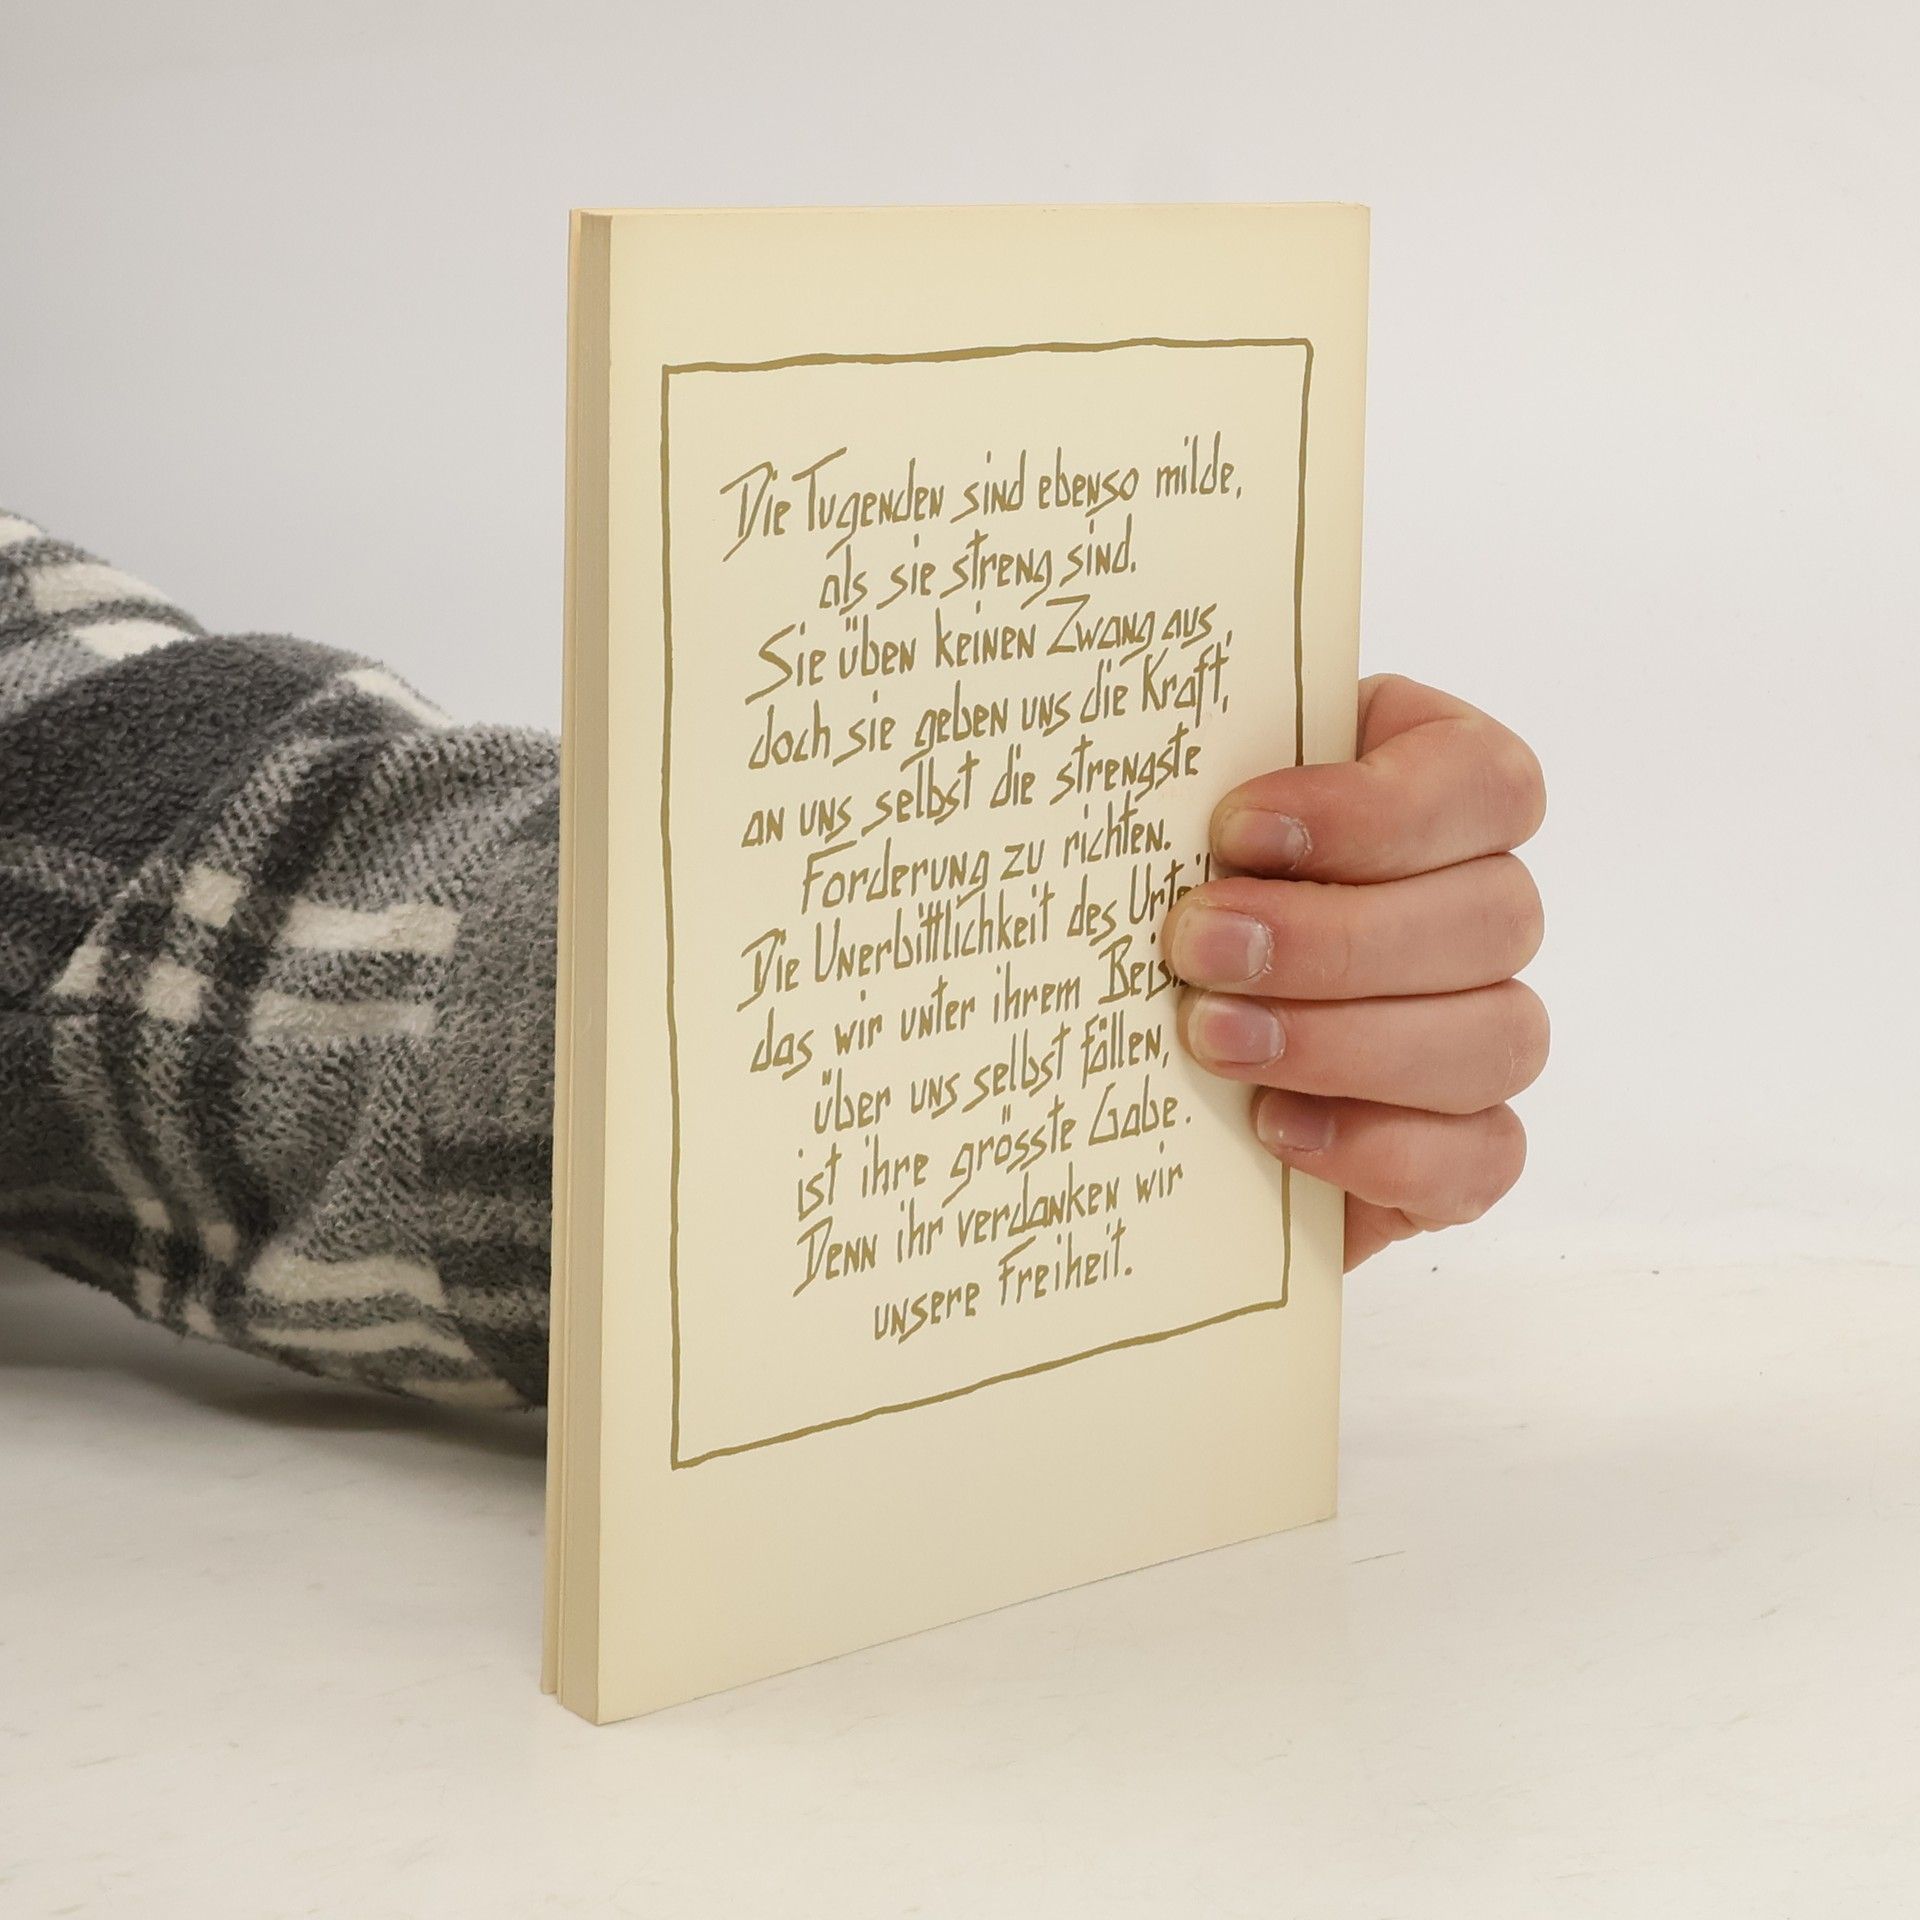 Die Tugenden sind ebenso milde,
als sie streng sind.
Sie üben keinen Zwang aus,
doch sie geben uns die Kraft,
an uns selbst die strengste
Forderung zu richten.
Die Unerbittlichkeit des
das wir unter ihrem
über uns selbst fällen,
ist ihre grösste Gabe.
Denn ihr verdanken wir
unsere Freiheit.